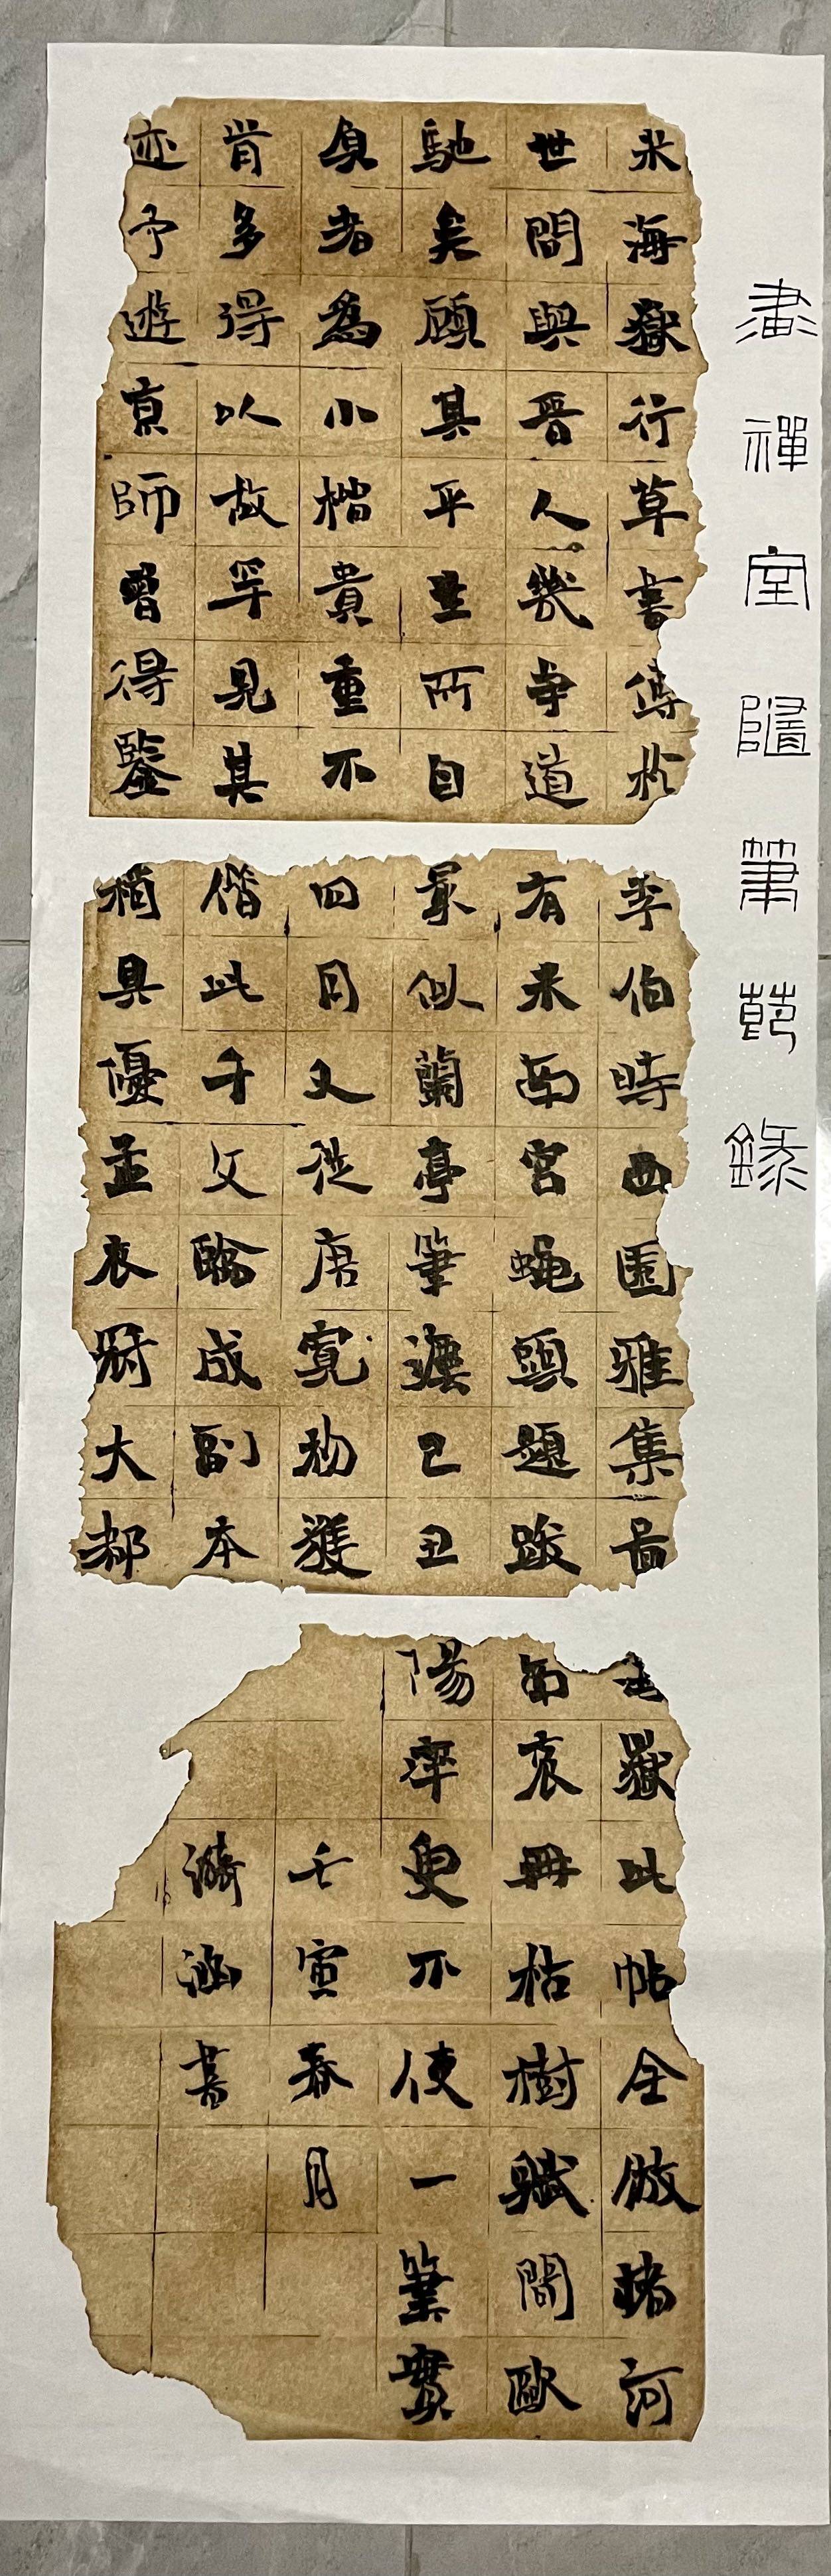 畫禪室隨筆節錄
米海嶽行草書傳於
世間與晉人幾爭道
馳矣顧其平生所自
負者為小楷貴重不
肯多得以故罕見其
迹予遊京師曾得鑒
李伯時西園雅集圖
有米南宮蠅頭題跋
最似蘭亭筆灋己丑
四月又從唐完初獲
借此千文臨成副本
稍具優孟衣冠大都
海嶽此帖全倣褚河
南哀冊枯樹賦間歐
陽率更不使一筆實
壬寅春月
漪涵書